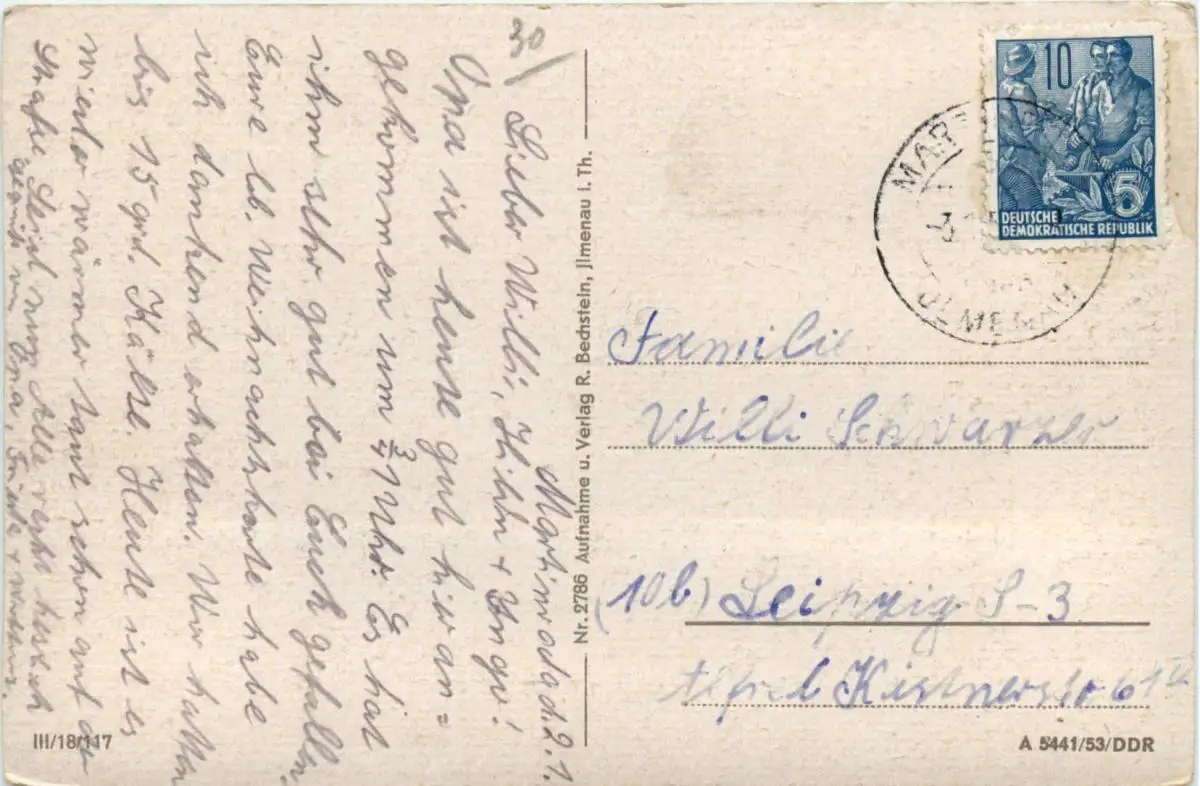 30/
Martinroda d. 2. 1.
Lieber Willi, Hilde + Inge!
Opa ist heute gut hier an=
gekommen um 3/4 1 Uhr. Es hat
ihm sehr gut bei Euch gefallen.
Eure lb. Weihnachtskarte habe
ich dankend erhalten. Wir hatten
bis 15 grd. Kälte. Heute ist es
wieder wärmer taut schon auf der
Straße. Seid nun Alle recht herzlich
gegrüßt von
Nr. 2786 Aufnahme u. Verlag R. Bechstein, Jlmenau i. Th.
10
5
DEUTSCHE
DEMOKRATISCHE REPUBLIK
Familie
Willi Schwarzer
(10b) Leipzig S-3
Alfred Kästnerstr 61
III/18/117
A 5441/53/DDR